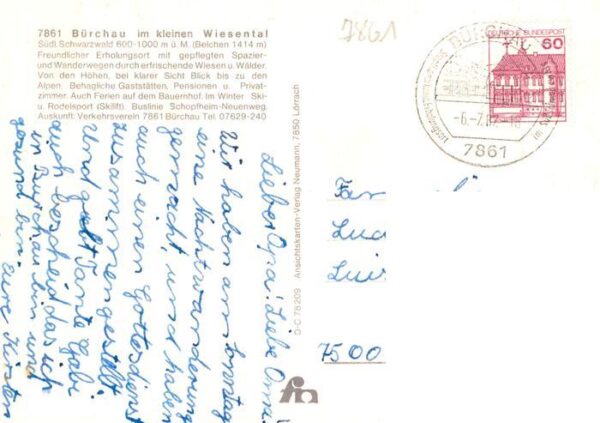 7861 Bürchau im kleinen Wiesental
Südl. Schwarzwald 600-1000 m ü. M. (Belchen 1414 m)
Freundlicher Erholungsort mit gepflegten Spazier-
und Wanderwegen durch erfrischende Wiesen u. Wälder.
Von den Höhen, bei klarer Sicht Blick bis zu den
Alpen. Behagliche Gaststätten, Pensionen u. Privat-
zimmer. Auch Ferien auf dem Bauernhof. Im Winter Ski-
u. Rodelsport (Skilift) Buslinie Schopfheim-Neuenweg.
Auskunft: Verkehrsverein 7861 Bürchau Tel. 07629-240
Lieber Opa! Liebe Oma!
Wir haben am Sonntag
eine Nachtwanderung
gemacht, und haben
auch einen Gottesdienst
zusammengestellt.
Und gebt Tante Gabi
auch bescheid das ich
in Bürchau bin und
gesund bin. eure Kirsten
D-C 78 209 Ansichtskarten-Verlag Neumann, 7850 Lörrach
7861
DEUTSCHE BUNDESPOST
60
7861
7500